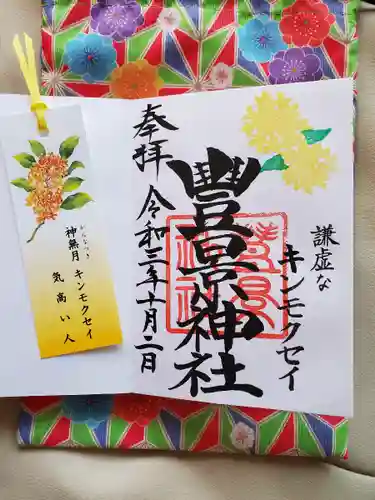 謙虚な
キンモクセイ
豐景神社
奉拝 令和三年十月二日
神無月 キンモクセイ
かんなづき
気高い人